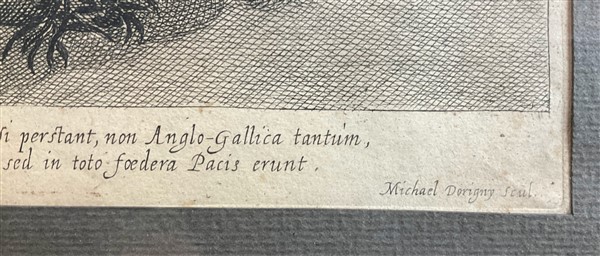 si perstant, non Anglo-Gallica tantùm,
sed in toto fœdera Pacis erunt.
Michael Dorigny Scul.